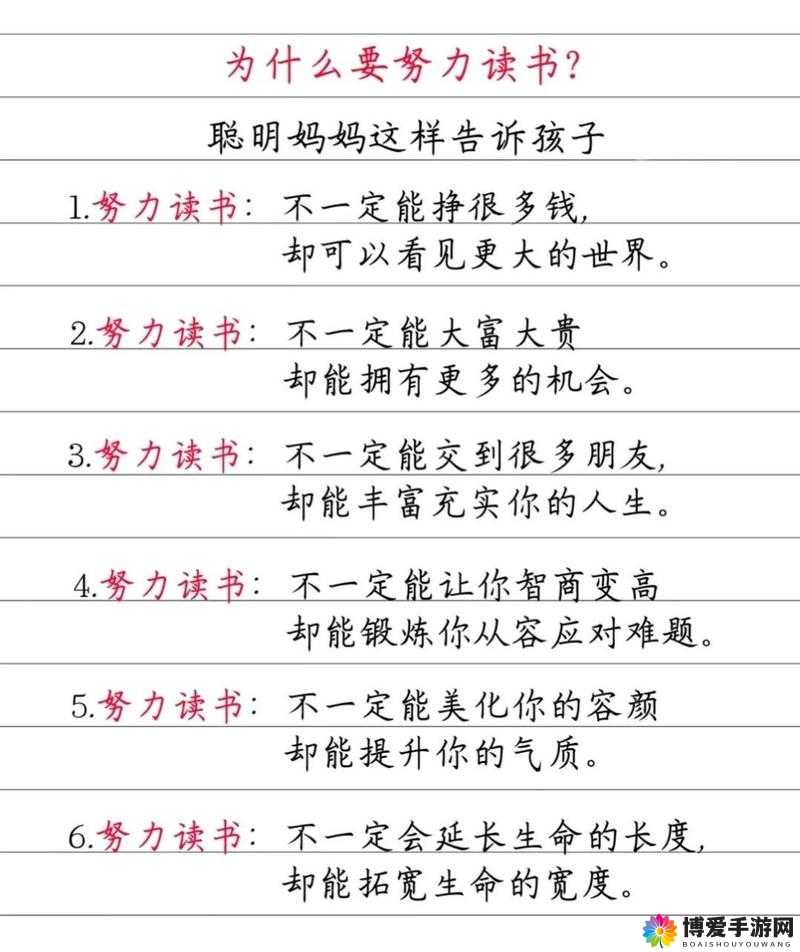 为什么要努力读书?
聪明妈妈这样告诉孩子
1.努力读书：不一定能挣很多钱,
却可以看见更大的世界。
2.努力读书：不一定能大富大贵
却能拥有更多的机会。
3.努力读书：不一定能交到很多朋友,
却能丰富充实你的人生。
4.努力读书：不一定能让你智商变高
却能锻炼你从容应对难题。
5.努力读书：不一定能美化你的容颜
却能提升你的气质。
6.努力读书：不一定会延长生命的长度,
却能拓宽生命的宽度。
博爱手游网
BOAISHOUYOUWANG